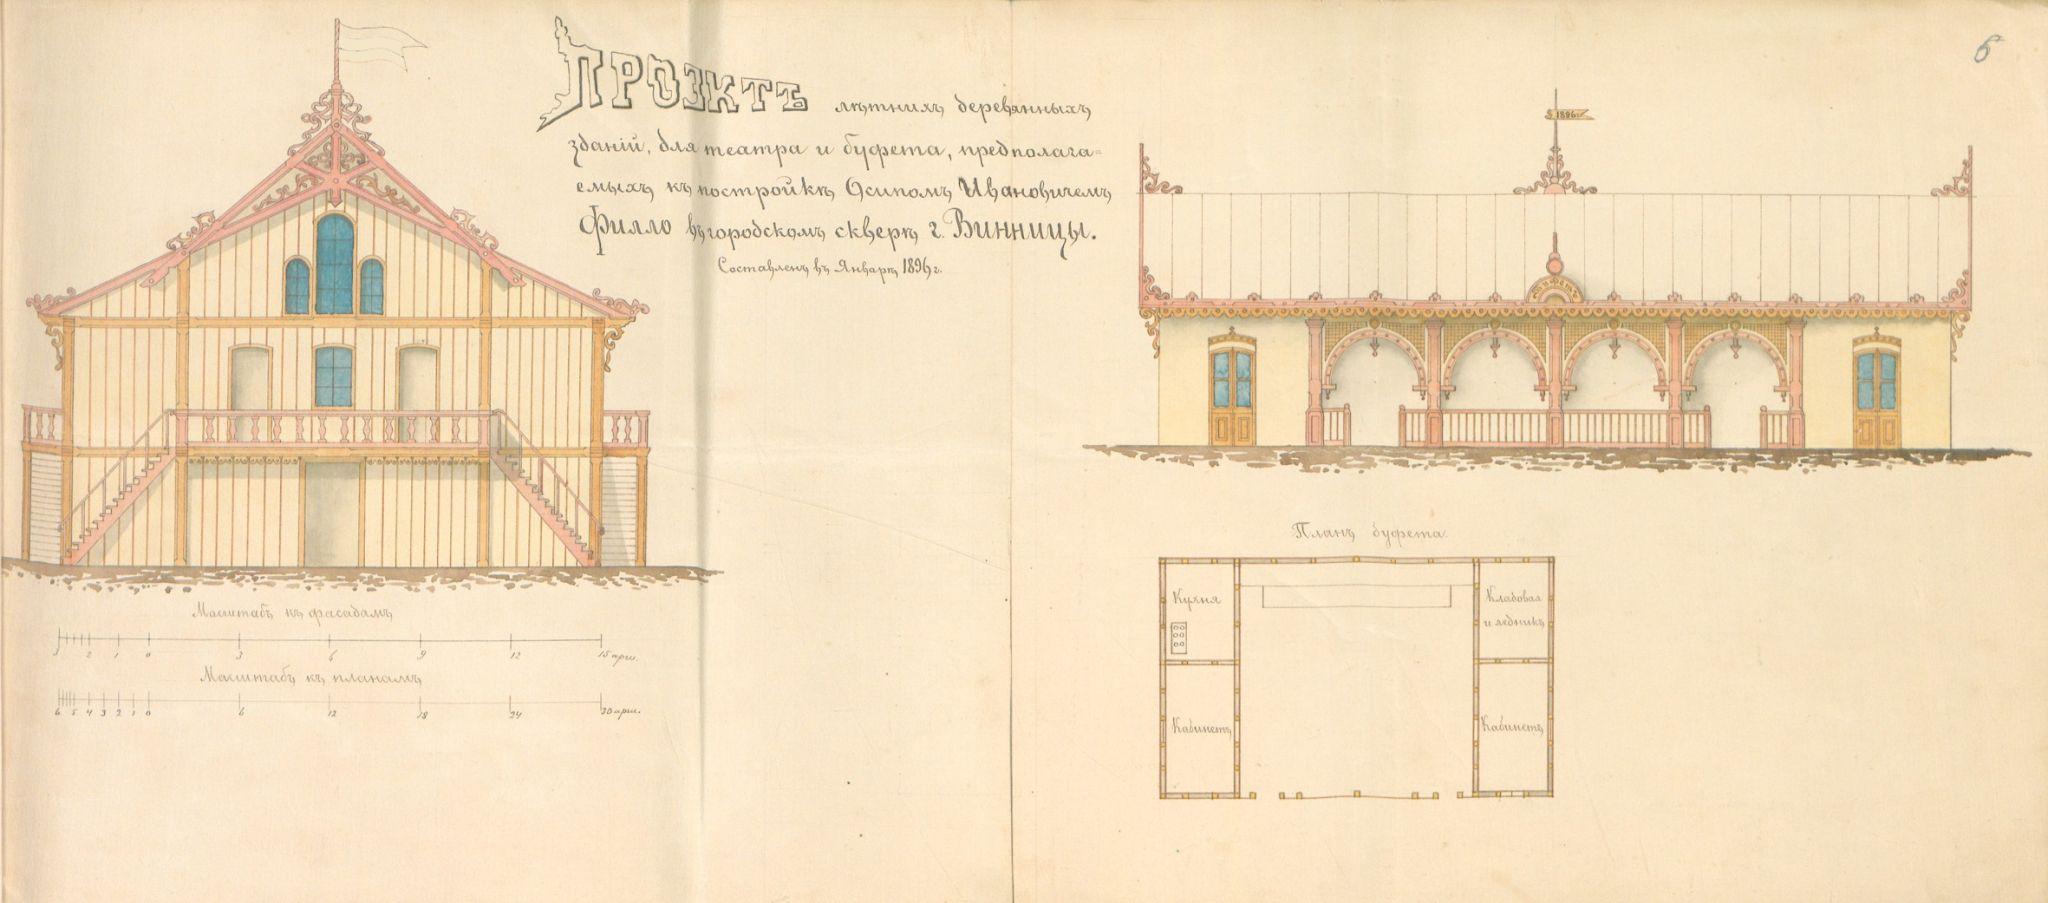 Проэктъ лѣтнихъ деревянныхъ
зданій, для театра и буфета, предполага=
емыхъ къ постройкѣ Осипомъ Ивановичемъ
Филло въ городскомъ скверѣ г. Винницы.
Составленъ въ Январѣ 1896 г.
6
1896 г.
Буфетъ
Масштабъ къ фасадамъ
3 2 1 0 3 6 9 12 15 арш.
Масштабъ къ планамъ
6 5 4 3 2 1 0 6 12 18 24 30 арш.
Планъ буфета
Кухня
Кладовая
и ледникъ
Кабинетъ
Кабинетъ